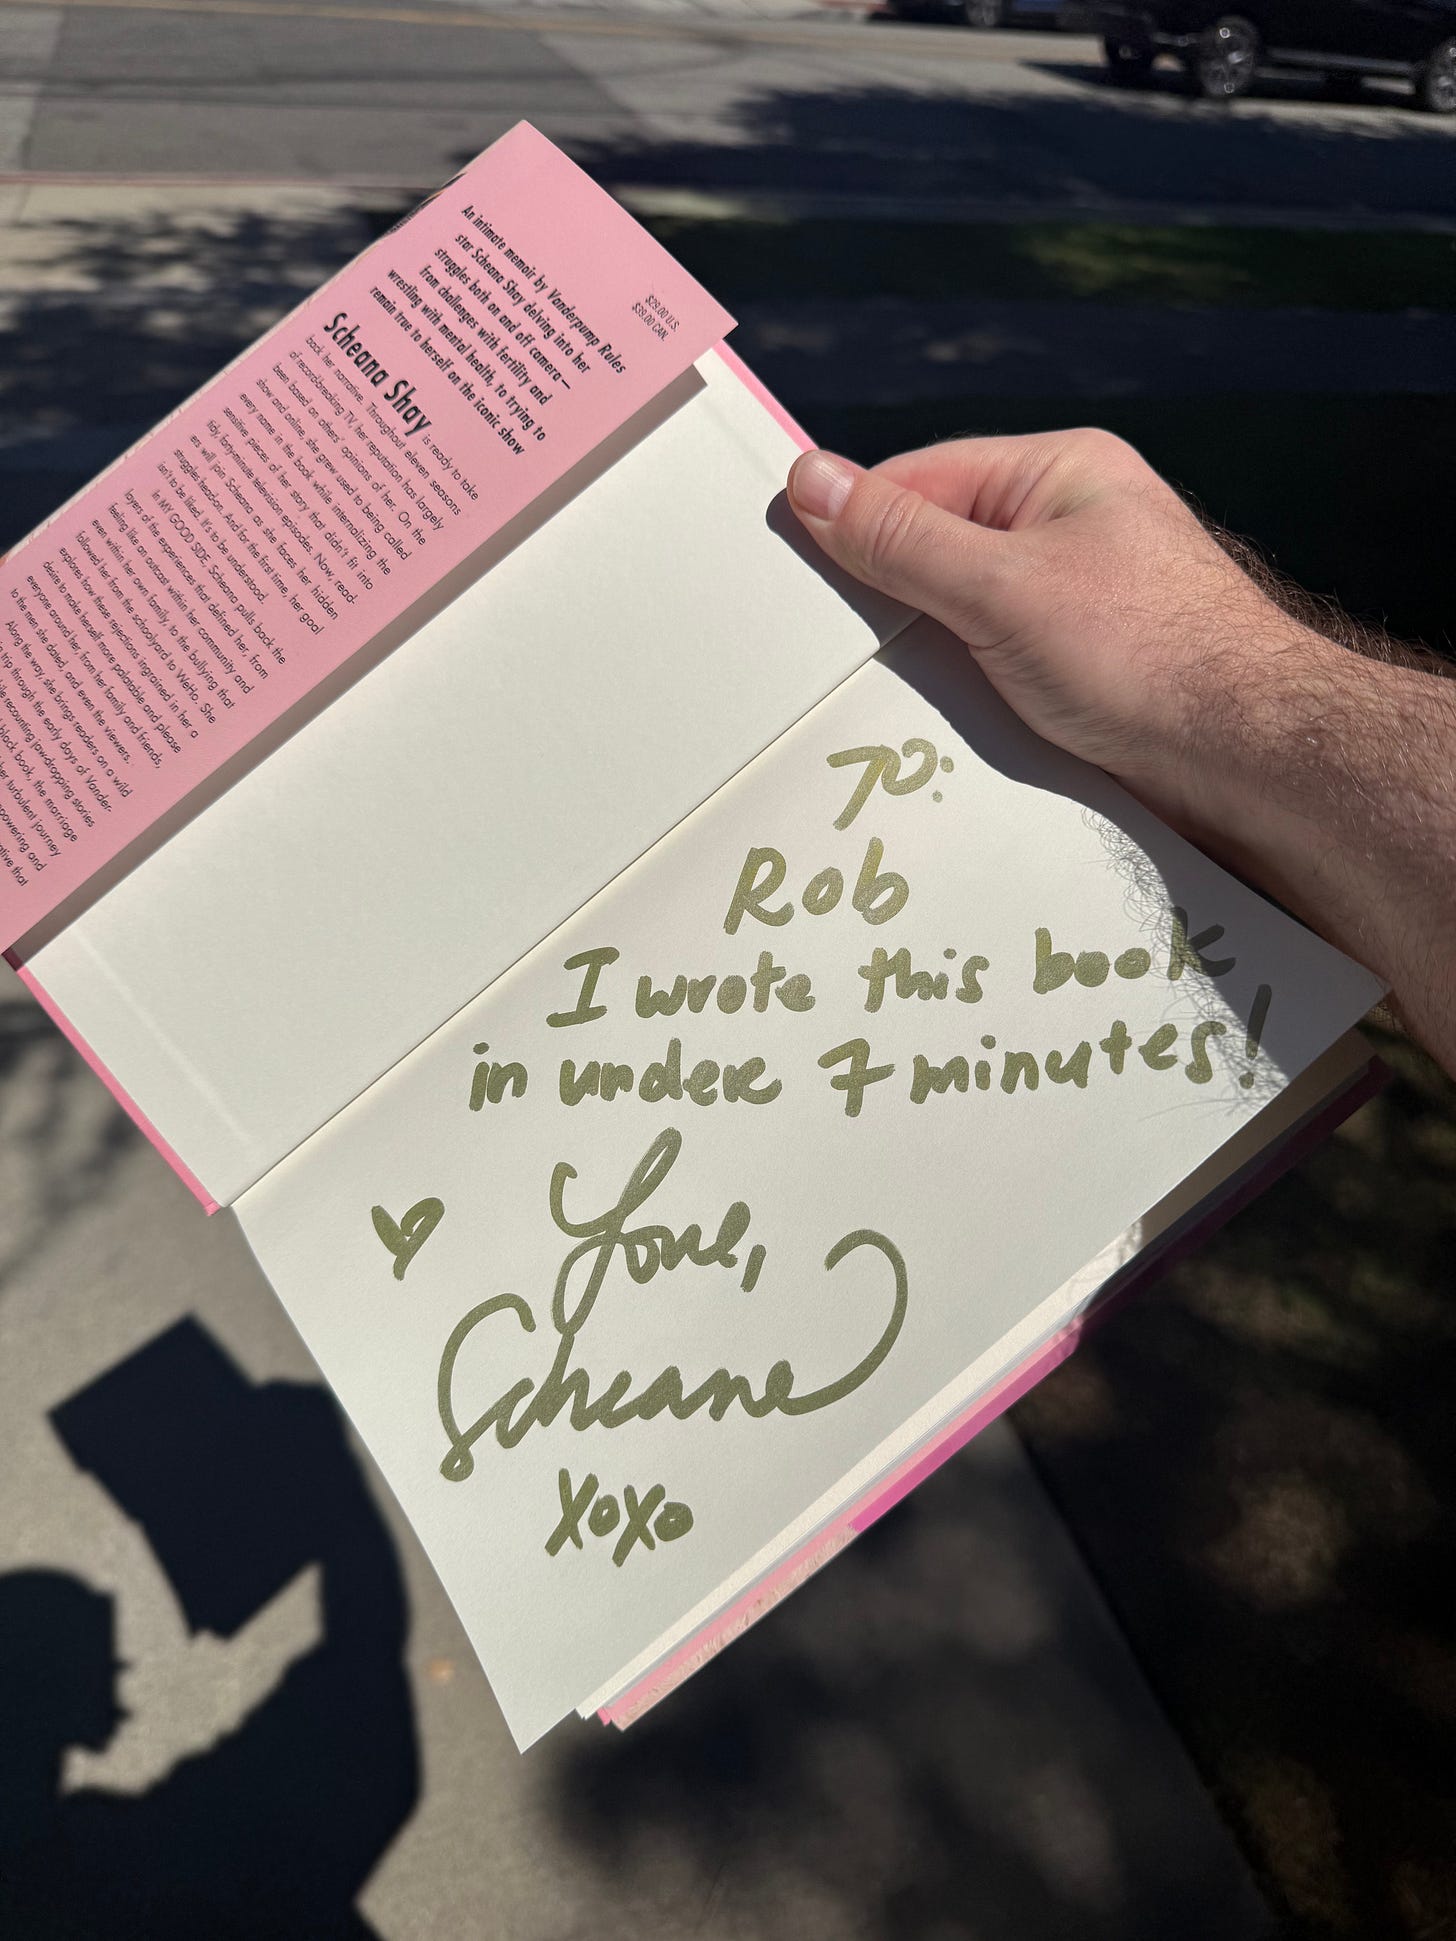 $29.00 U.S.
$39.00 CAN.
An intimate memoir by Vanderpump Rules
star Scheana Shay delving into her
struggles both on and off camera—
from challenges with fertility and
wrestling with mental health, to trying to
remain true to herself on the iconic show
Scheana Shay is ready to take
back her narrative. Throughout eleven seasons
of record-breaking TV, her reputation has largely
been based on others' opinions of her. On the
show and online, she grew used to being called
every name in the book while internalizing the
sensitive pieces of her story that didn't fit into
tidy, forty-minute television episodes. Now, read-
ers will join Scheana as she faces her hidden
struggles head-on. And for the first time, her goal
isn't to be liked. It's to be understood.
In MY GOOD SIDE, Scheana pulls back the
layers of the experiences that defined her, from
feeling like an outcast within her community and
even within her own family, to the bullying that
followed her from the schoolyard to WeHo. She
explores how these rejections ingrained in her a
desire to make herself more palatable and please
everyone around her, from her family and friends,
to the men she dated, and even the viewers.
Along the way, she brings readers on a wild
trip through the early days of Vander-
recounting jawdropping stories
black book, the marriage
her turbulent journey
powering and
ative that
To:
Rob
I wrote this book
in under 7 minutes!
Love,
Scheana
xoxo